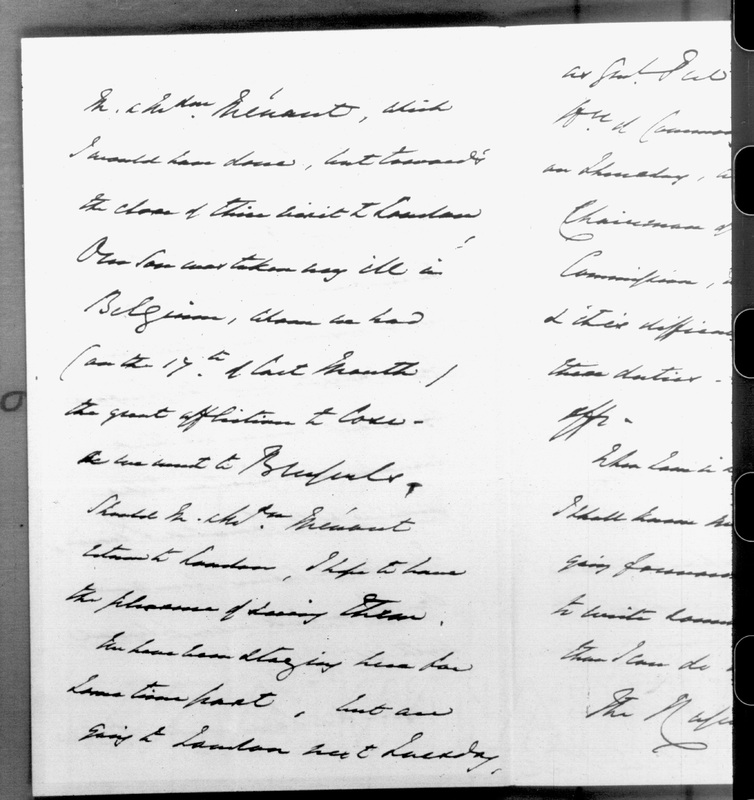 M. & Mdme Ménant, which
I would have done, but towards
the close of their visit to London
Our Son was taken very ill in
Belgium, whom we had
(on the 17th of last Month)
the great affliction to lose -
as we went to Brussels,
Should M. & Mdme Ménant
return to London, I hope to have
the pleasure of seeing Them.
We have been staying here for
some time past, but are
going to London next Tuesday,
as
of Commo
on Thursday, a
Chairman of
Commission,
& it is difficul
those duties -
offr -
When I am in
I shall know
going forward
to write
than I can do
The